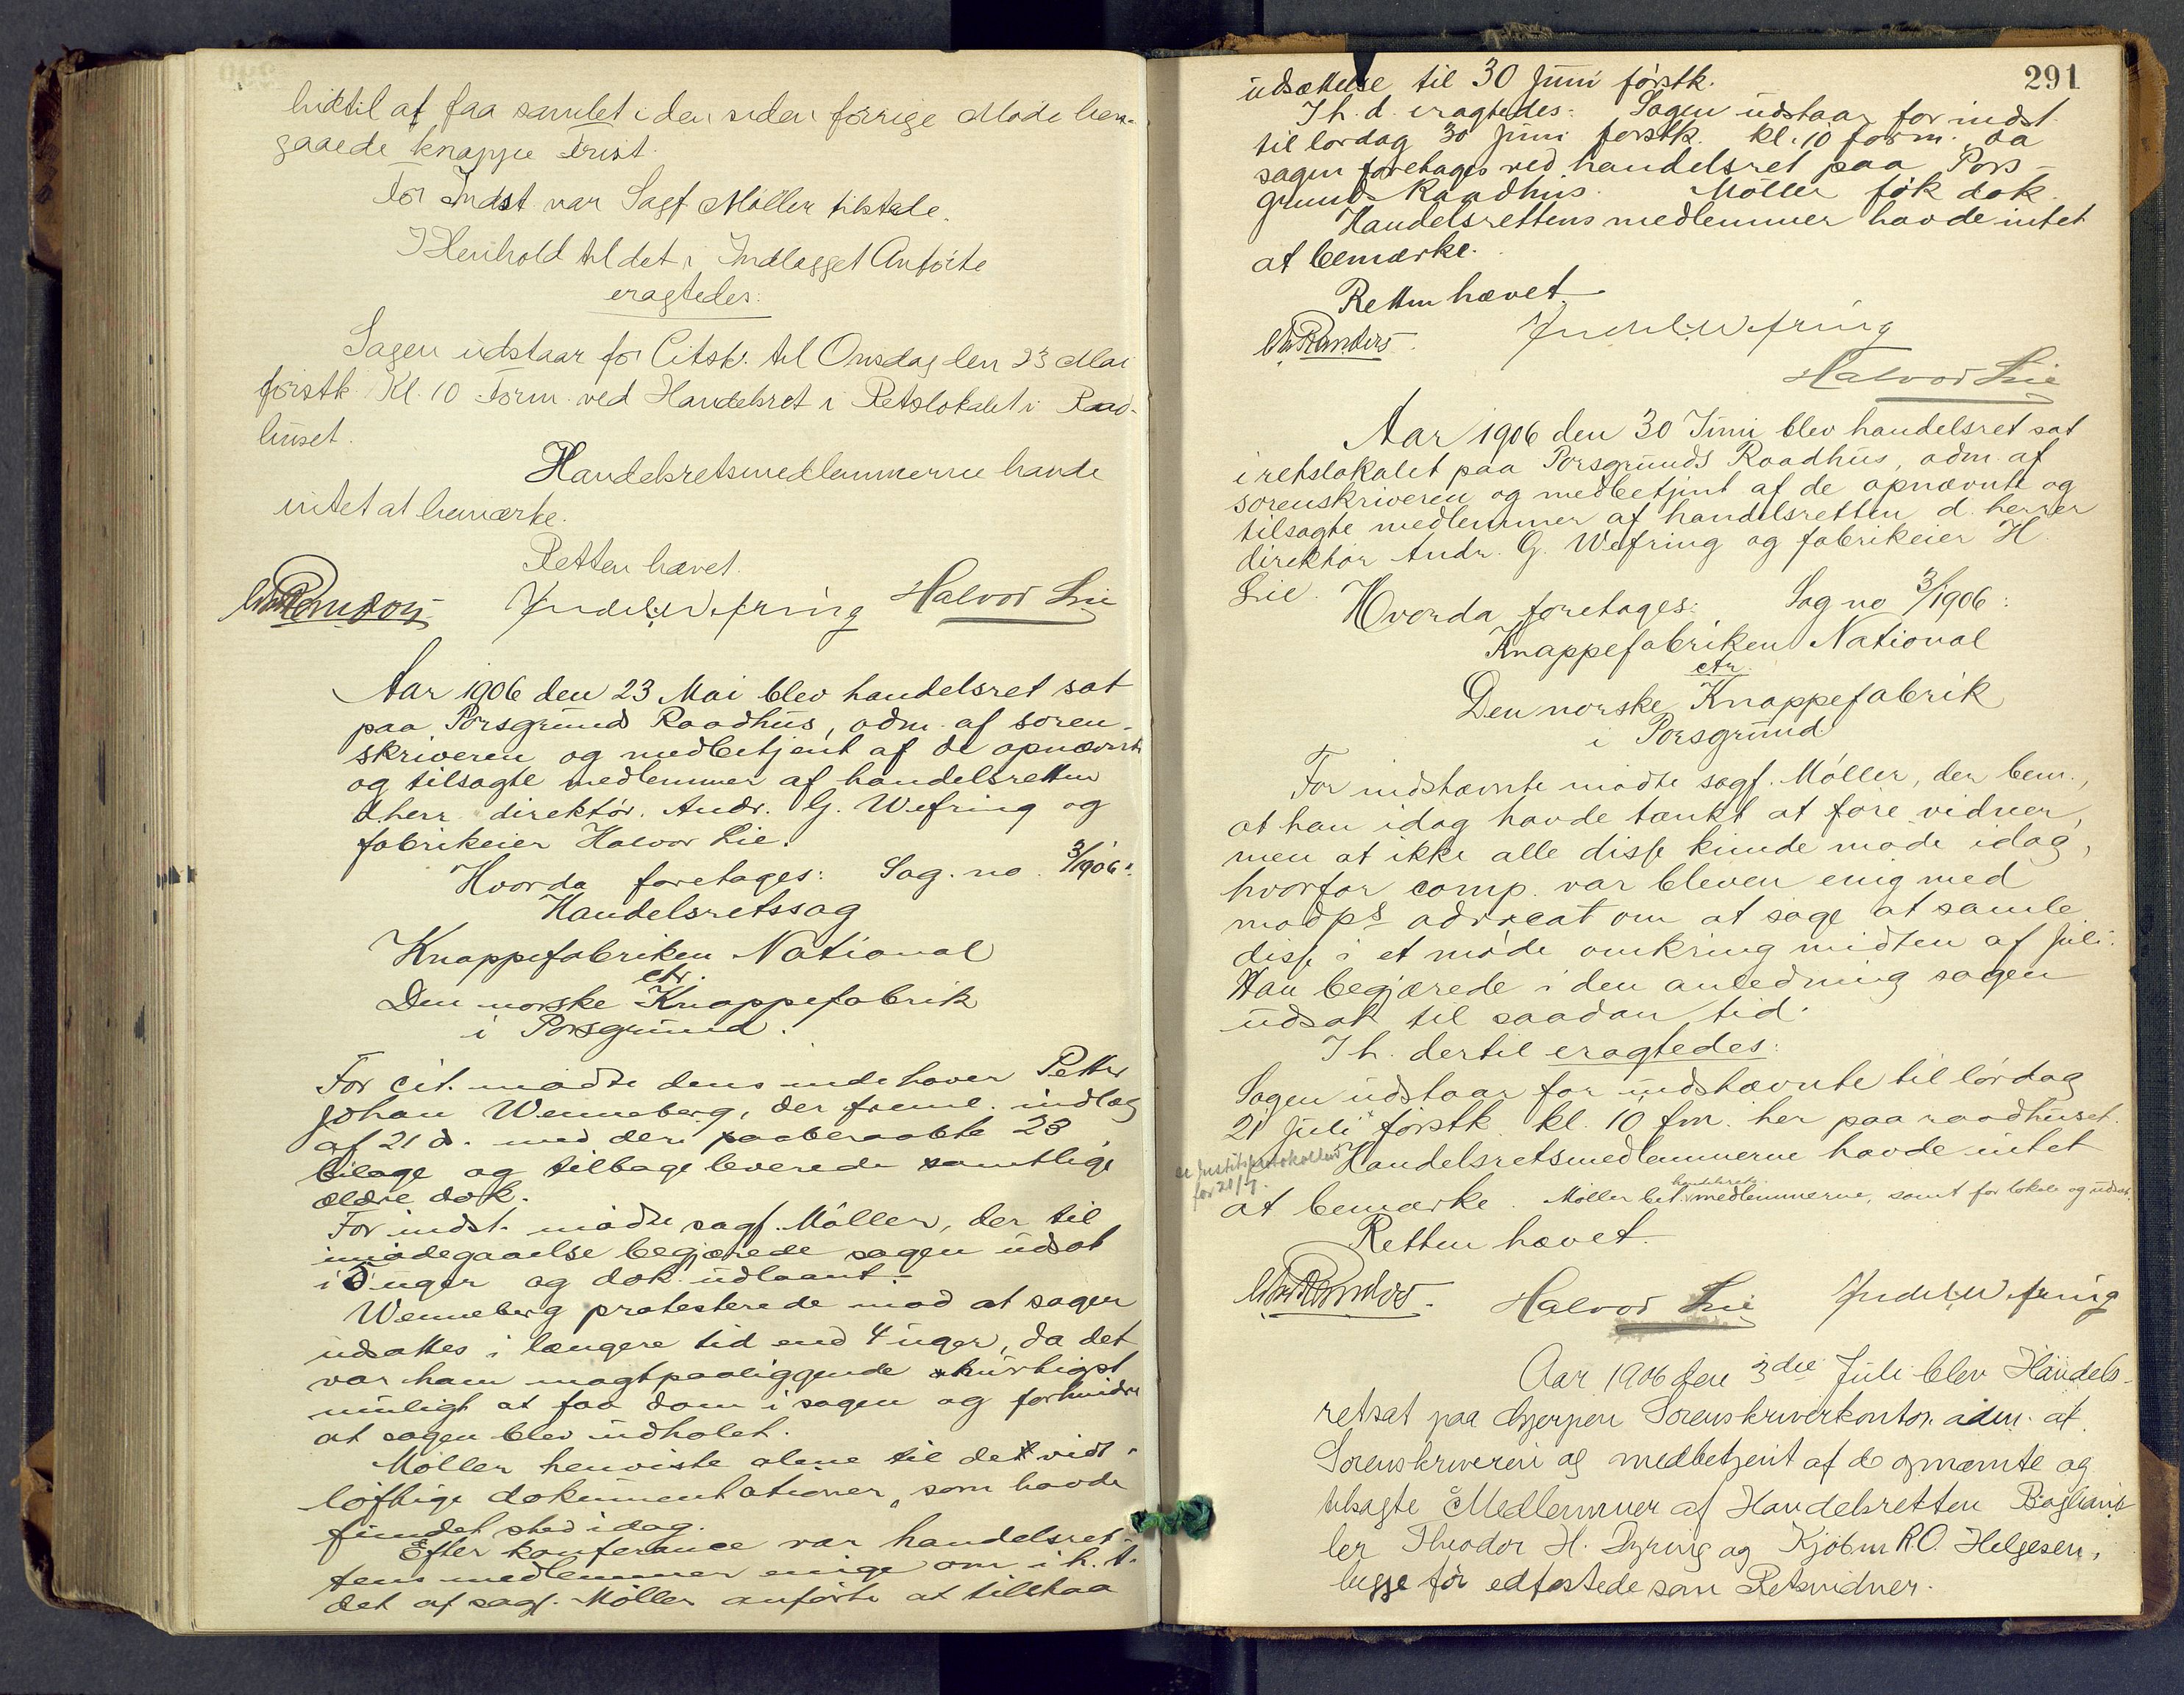 hidtil at faa samlet i den siden forrige Møde hen-
gaaede knappe Frist.
For Indst. var Sagf. Møller tilstede.
I Henhold til det i Indlægget Anførte
eragtedes:
Sagen udstaar for Citst. til Onsdag den 23 Mai
førstk. Kl. 10 Form. ved Handelsret i Retslokalet i Raad-
huset.
Handelsretsmedlemmerne havde
intet at bemærke.
Retten hævet.
Andr. G. Wefring Halvor Lie
Aar 1906 den 23 Mai blev handelsret sat
paa Porsgrunds Raadhus, adm. af soren-
skriveren og medbetjent af de opnævnte
og tilsagte medlemmer af handelsretten
d. herr. direktør. Andr. G. Wefring og
fabrikeier Halvor Lie.
Hvorda foretages: Sag. no. 3/1906:
Handelsretssag
Knappefabriken National
ctr.
Den norske Knappefabrik
i Porsgrund.
For cit. mødte dens indehaver Petter
Johan Wenneberg, der freml. indlæg
af 21 d. med deri paaberaabte 23
bilage og tilbageleverede samtlige
ældre dok.
For indst. mødte sagf. Møller, der til
imødegaaelse begjærede sagen udsat
i uger og dok. udlaant.
Wenneberg protesterede mod at sagen
udsattes i længere tid end 4 uger, da det
var ham magtpaaliggende hurtigst
muligt at faa dom i sagen og forhindre
at sagen blev udhalet.
Møller henviste alene til de vidt-
løftige dokumentationer, som havde
fundet sted idag.
Efter konferance var handelsret-
tens medlemmer enige om i h. t.
det af sagf. Møller anførte at tilstaa
291
udsættelse til 30 Juni førstk.
I h. d. eragtedes: Sagen udstaar for indst.
til lørdag 30 Juni førstk. kl. 10 form. da
sagen foretages ved handelsret paa Pors-
grunds Raadhus. Møller fik dok.
Handelsrettens medlemmer havde intet
at bemærke.
Retten hævet.
Randers. Andr. G. Wefring
Halvor Lie
Aar 1906 den 30 Juni blev handelsret sat
i retslokalet paa Porsgrunds Raadhus, adm. af
sorenskriveren og medbetjent af de opnævnte og
tilsagte medlemmer af handelsretten d. herrer
direktør Andr. G. Wefring og fabrikeier H.
Lie.
Hvorda foretages: Sag no 3/1906:
Knappefabriken National
ctr.
Den norske Knappefabrik
i Porsgrund
For indstævnte mødte sagf. Møller, der bem.,
at han idag havde tænkt at føre vidner,
men at ikke alle disse kunde møde idag,
hvorfor comp. var bleven enig med
modps advocat om at søge at samle
disse i et møde omkring midten af Juli.
Han begjærede i den anledning sagen
udsat til saadan tid.
I h. dertil eragtedes:
Sagen udstaar for indstævnte til lørdag
21 Juli førstk. kl. 10 fm. her paa raadhuset.
Handelsretsmedlemmerne havde intet
se Justitsprotokollen
for 21/7.
at bemærke. Møller bet. handelsrets
medlemmerne, samt for lokale og udsæt.
Retten hævet.
Randers. Halvor Lie Andr. G. Wefring
Aar 1906 den 3die Juli blev Handels-
ret sat paa Gjerpen Sorenskriverkontor adm. af
Sorenskriveren og medbetjent af de opnævnte og
tilsagte Medlemmer af Handelsretten Boghand-
ler Theodor H. Dyring og Kjøbm. R.O. Helgesen,
begge før edfæstede som Retsvidner.